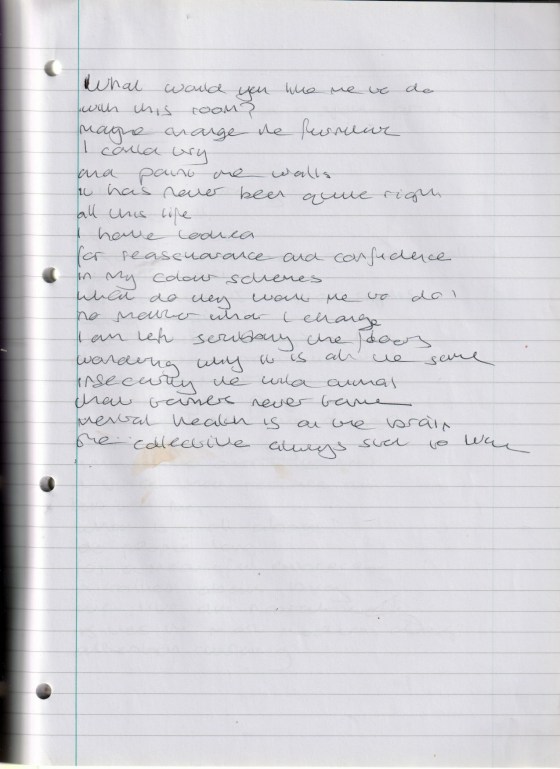 What would you like me to do
with this room?
maybe change the furniture
I could try
and paint the walls
it has never been quite right
all this life
I have looked
for reassurance and confidence
in my colour schemes
what do they want me to do?
no matter what I change
I am left scrubbing the floors
wondering why it is all the same
insecurity the wild animal
that tamers never tame
mental health is on the brain
the collective always